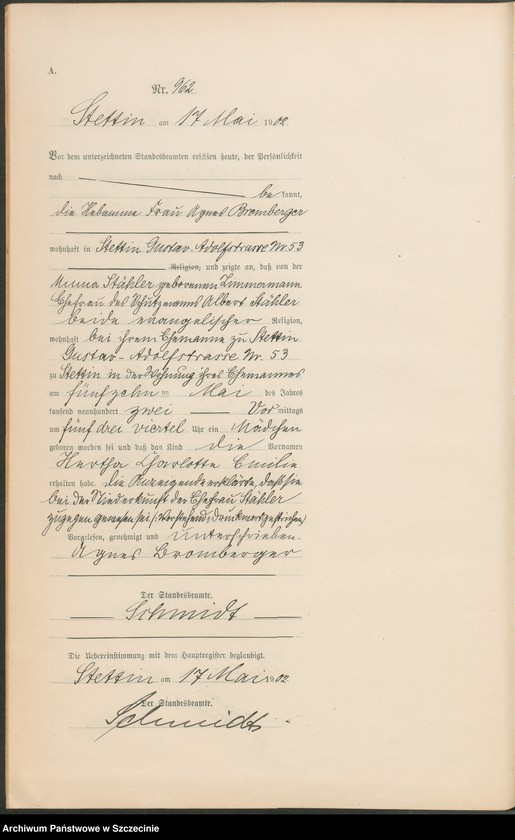 A.
Nr. 962.
Stettin am 17 Mai 1902.
Vor dem unterzeichneten Standesbeamten erschien heute, der Persönlichkeit
nach
be kannt,
die Hebamme Frau Agnes Bromberger
wohnhaft in Stettin Gustav-Adolfstrasse Nr. 53
Religion, und zeigte an, daß von der
Minna Stähler geborenen Zimmermann
Ehefrau des Schutzmanns Albert Stähler
beide evangelischer Religion,
wohnhaft bei ihrem Ehemanne zu Stettin
Gustav-Adolfstrasse Nr. 53
zu Stettin in der Wohnung ihres Ehemannes
am fünfzehn ten Mai des Jahres
tausend neunhundert zwei Vor mittags
um fünf drei viertel Uhr ein Mädchen
geboren worden sei und daß das Kind die Vornamen
Hertha Charlotte Emilie
erhalten habe. Die Anzeigende erklärte, daß sie
bei der Niederkunft der Ehefrau Stähler
zugegen gewesen sei. (Vorstehend 1 Druckwort gestrichen)
Vorgelesen, genehmigt und unterschrieben.
Agnes Bromberger
Der Standesbeamte.
Schmidt
Die Uebereinstimmung mit dem Hauptregister beglaubigt.
Stettin am 17 Mai 1902
Der Standesbeamte.
Schmidt.
Archiwum Państwowe w Szczecinie